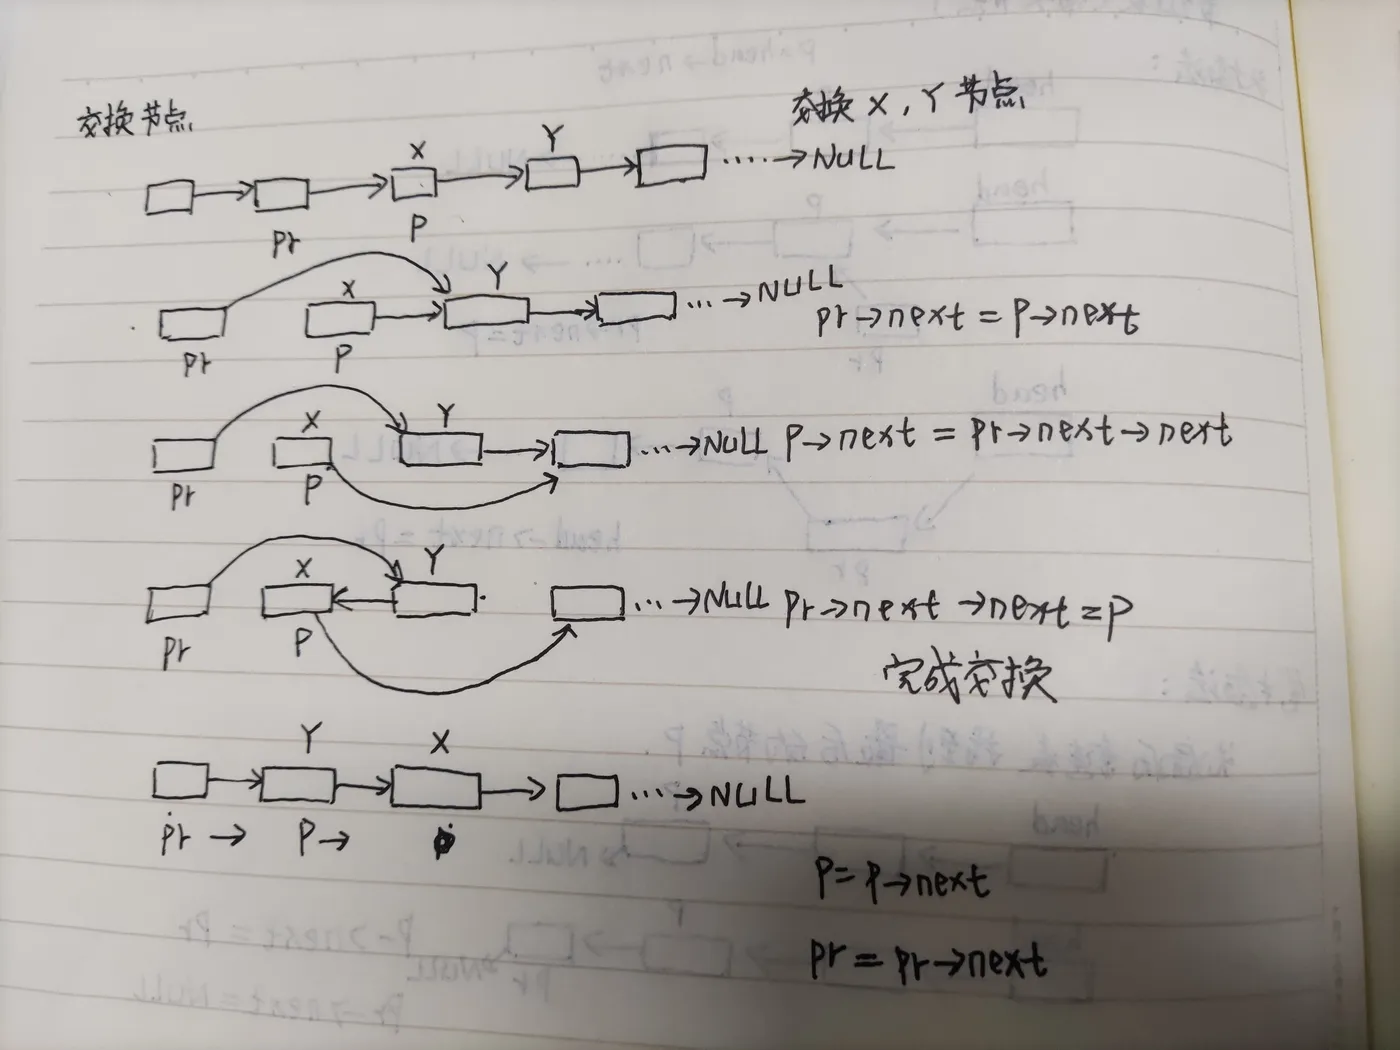 交换节点
交换 X, Y 节点
X Y
....→NULL
pr P
X Y
...→NULL
pr→next = P→next
pr P
X Y
...→NULL P→next = pr→next→next
pr P
X Y
...→NULL pr→next→next=P
pr P
完成交换
Y X
...→NULL
pr→ P→
P=P→next
pr=pr→next